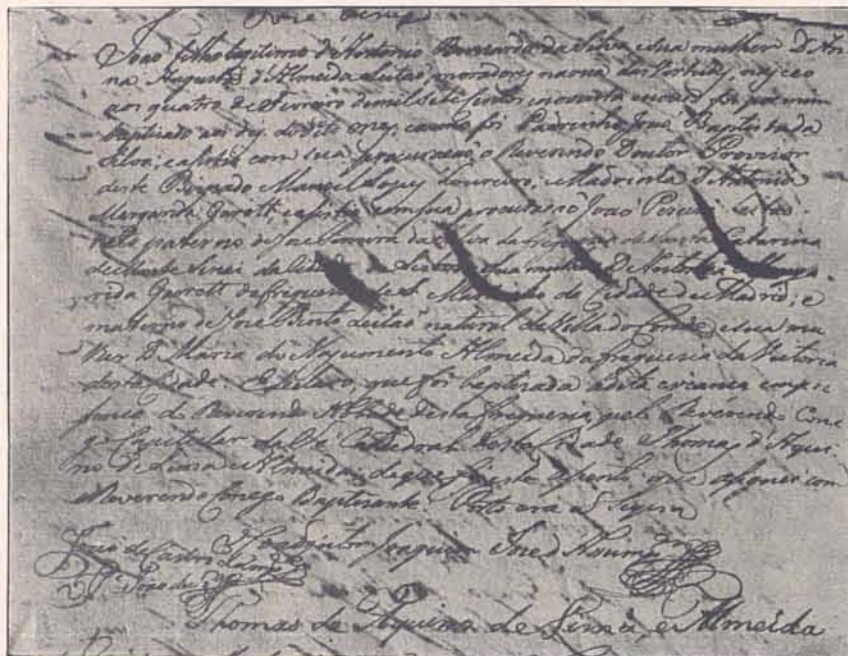 João filho legitimo d'Antonio Bernardo da Silva, e sua mulher D. An-
na Augusta d'Almeida Leitão, moradores na rua das, nasceo
aos quatro de Fevereiro de mil sete centos e noventa e nove, foi por mim
baptizado aos dez do dito mez, e anno foi Padrinho João Baptista da
Silva; e assistio com sua procuração o Reverendo Doutor Provizor
deste Bispado Manoel Lopes Loureiro, e Madrinha D. Antonia
Margarida Garett, e assistio com sua procuração João Leitão
neto paterno de José Ferreira da Silva da freguezia de Santa Catarina
de Monte Sinai da Cidade de Lisboa, e sua mulher D. Antonia Marga-
rida Garett da freguezia de S. Martinho da Cidade de Madrid; e
materno de José Bento Leitão natural de Villa do Conde, e sua mu-
lher D. Maria do Nascimento Almeida da freguesia da Victoria
desta Cidade. E declaro, que foi baptizada a dita criança em pre-
sença do Reverendo Abbade desta freguezia pelo Reverendo Cone-
go Capitular da Sé Cathedral desta Cidade Thomas d'Aqui-
no de Lima e Almeida: de que fiz este assento, que assinei com
o Reverendo Conego Baptizante. Porto era ut supra
O Coadjutor Joaquim José
João de Castro
Thomas de Aquino de Lima, e Almeida